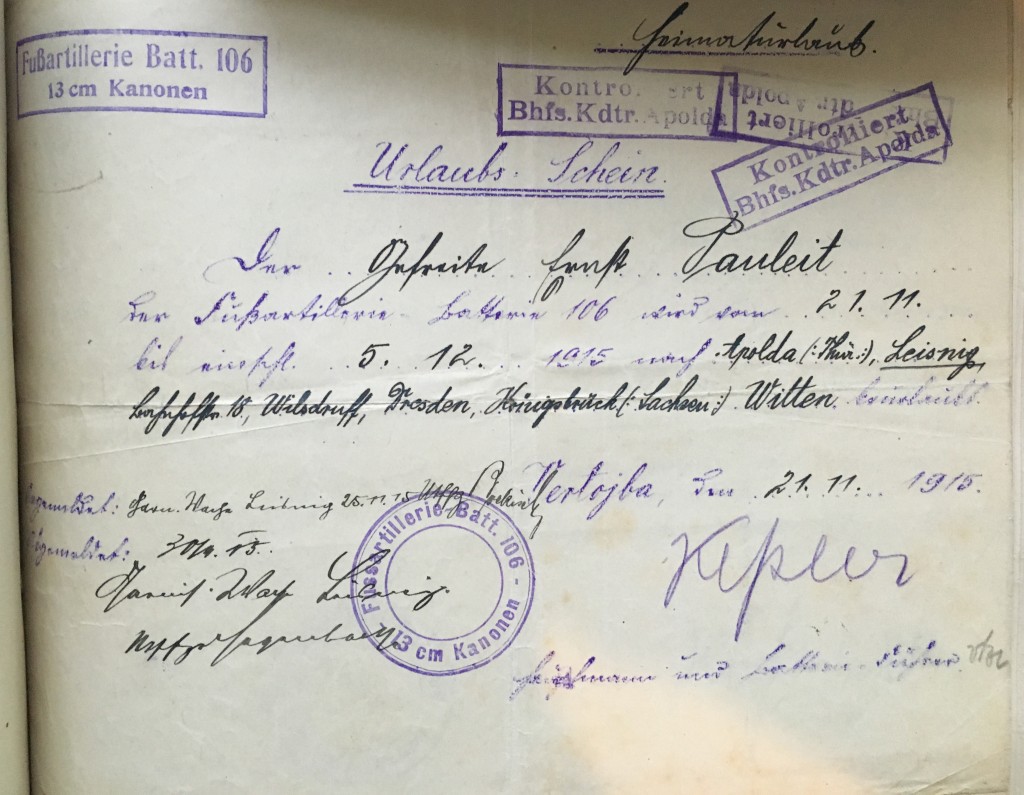 Heimaturlaub.
Fußartillerie Batt. 106
13 cm Kanonen
Kontro ert
Bhfs. Kdtr. Apolda
Kontrolliert
Bhfs. Kdtr. Apolda
Urlaubs-Schein.
Der Gefreite Ernst Pauleit
der Fußartillerie-Batterie 106 wird vom 21. 11.
bis einschl. 5. 12. 1915 nach Apolda (:Thür:), Leisnig,
Bahnhofstr. 18, Wilsdruff, Dresden, Königsbrück (:Sachsen:) Witten beurlaubt.
Vertojba, den 21. 11. 1915.
Angemeldet: Garn. Wache Leisnig 25.11.15 Utffz
Abgemeldet:
Garnis. Wache Leisnig.
Fussartillerie Batt. 106 -
13 cm Kanonen
Hauptmann und Batterie-Führer